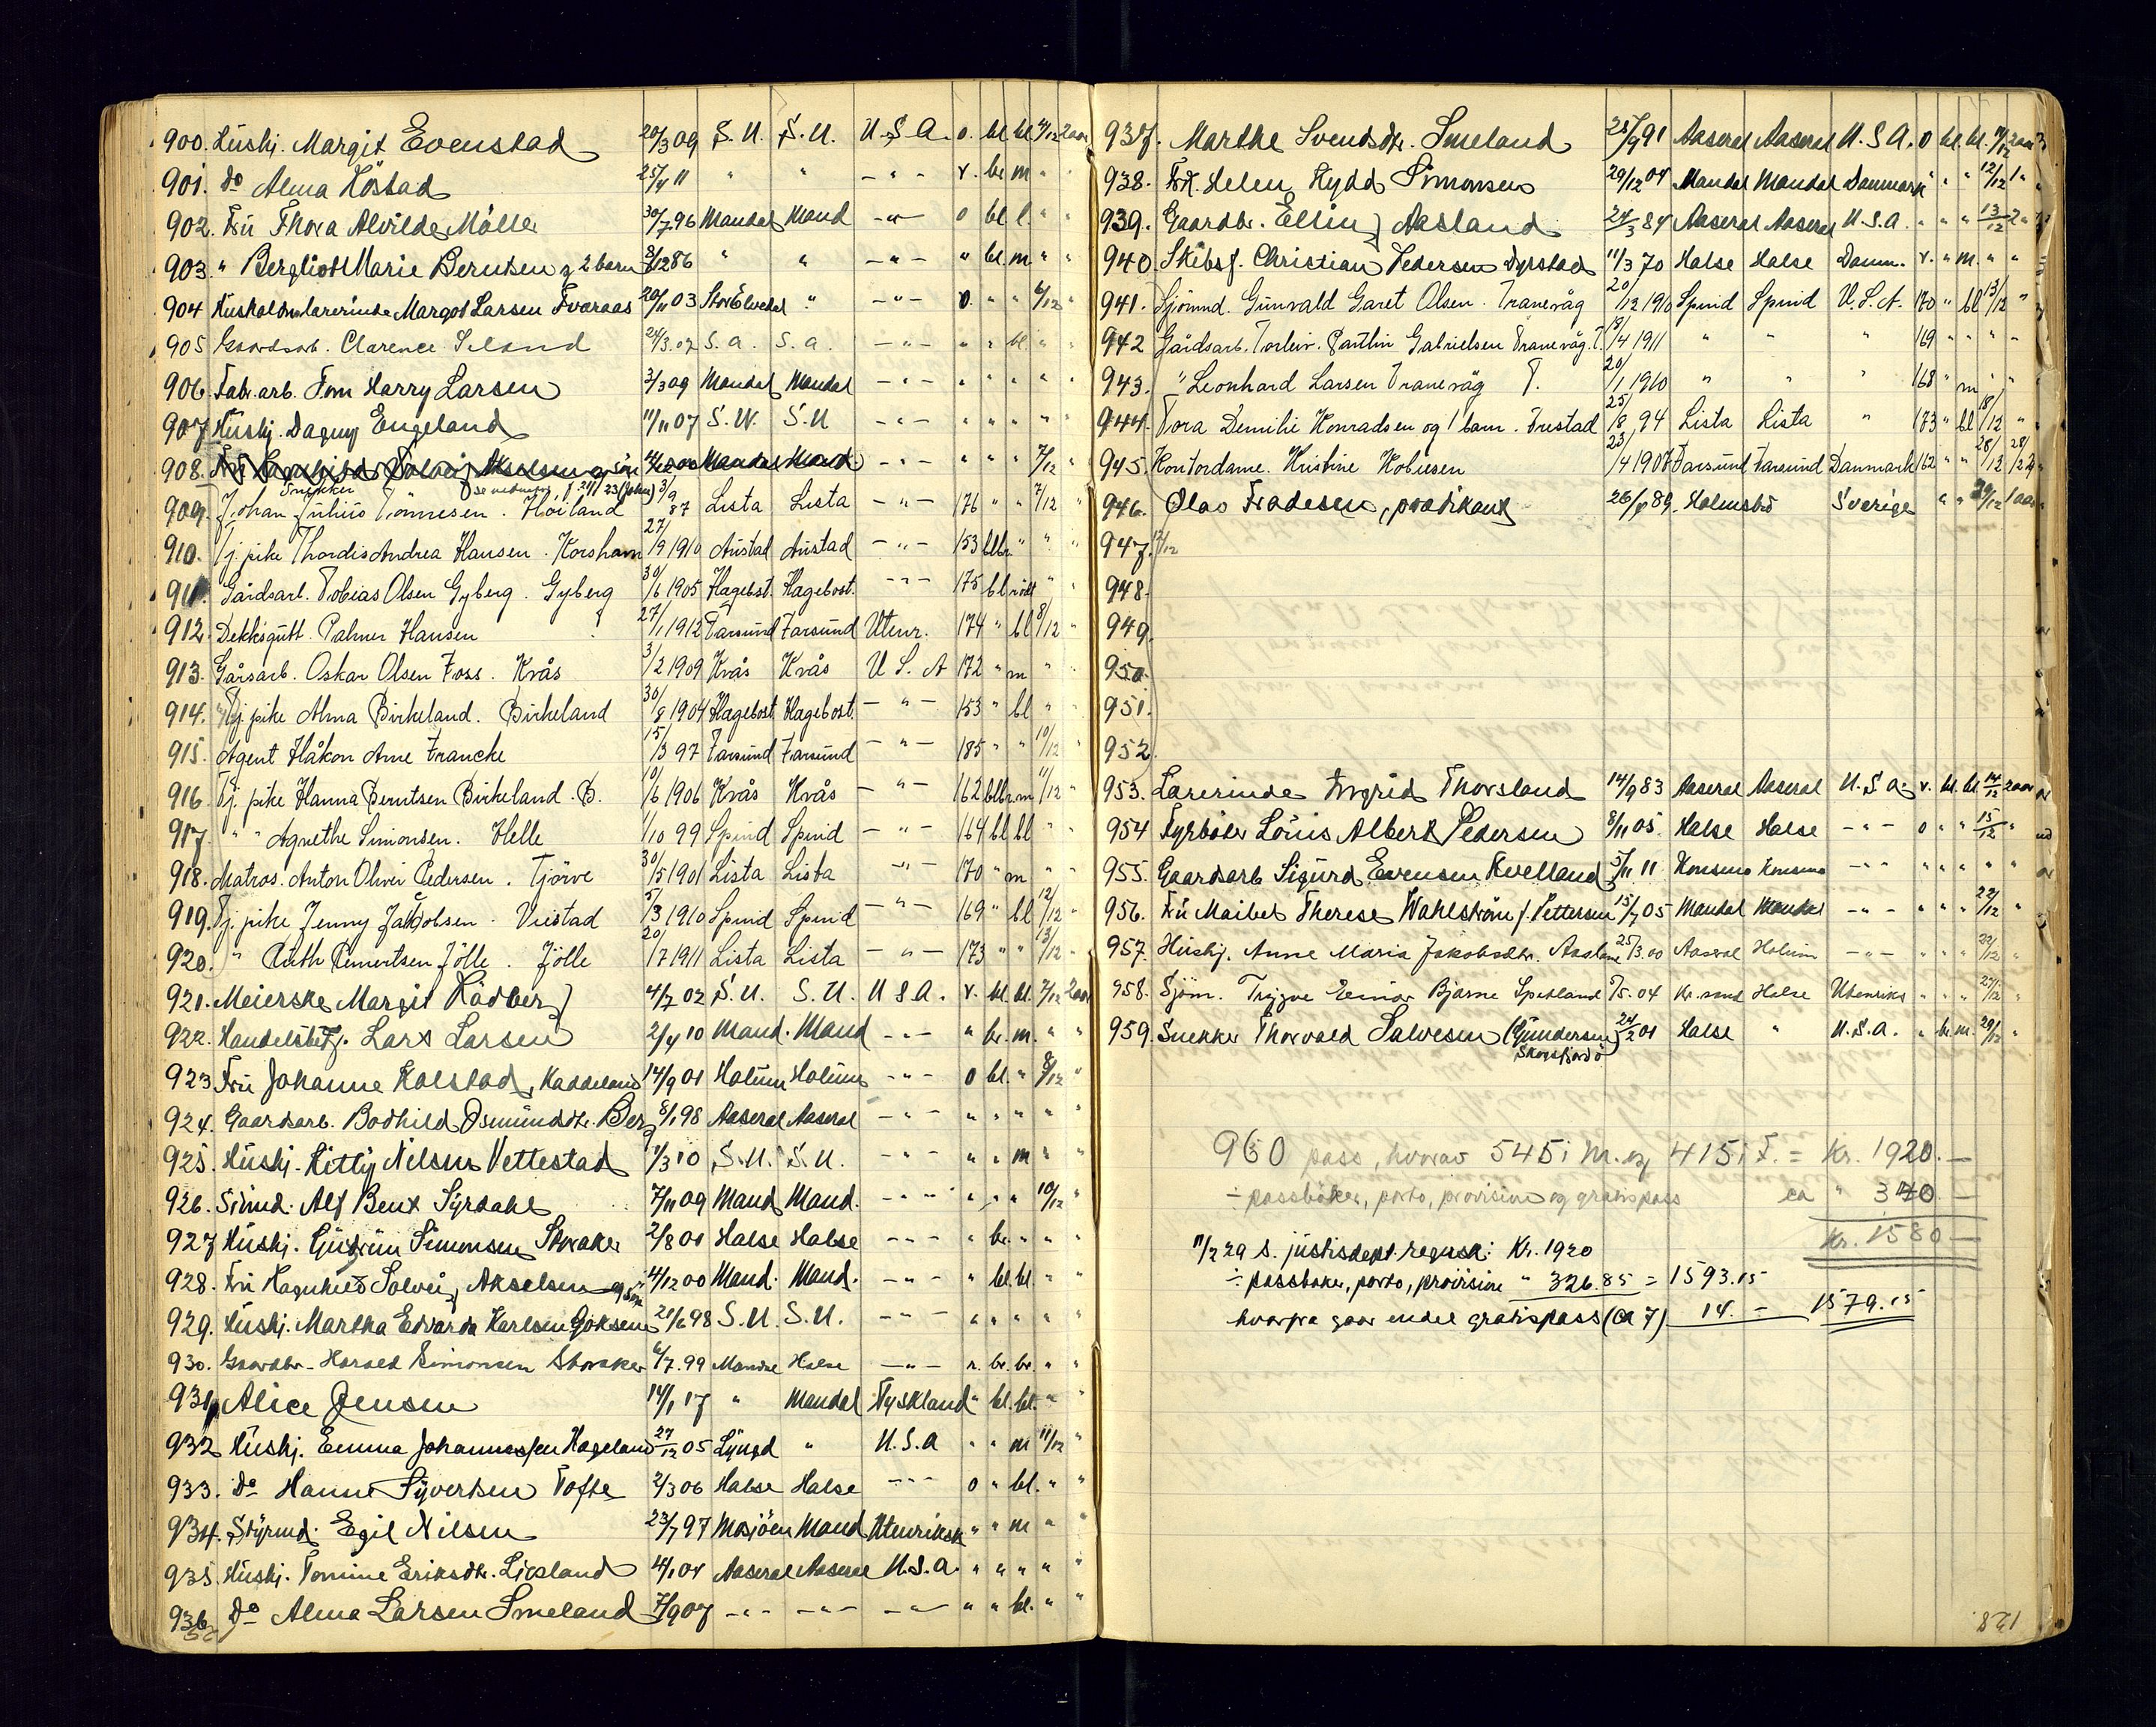 900. Hushj. Margit Evenstad 20/3 09 S. U. S. U. U. S. A. o. bl bl 7/12 2 aar
901. do Alma Köstad 25/4 11 " " – " – r. br m " "
902. Fru Thora Alvilde Mölle 30/7 96 Mandal Mand – " – o bl l. " "
903. " Bergliot Marie Berntsen og 2 barn 3/12 86 " " – " – " bl. m " "
904 Husholdn.lærerinde Margot Larsen Tvaraas 20/11 03 Stor Elvedal " – " – o. " " 6/12 "
905 Gaardsarb. Clarence Iland 24/3 07 S. a. S. a. – " – " " bl. " "
906. Fabr.arb. Tom Harry Larsen 3/3 09 Mandal Mandal – " – " " " " "
907 Hushj. Dagny Engeland 11/11 07 S. U. S. U – " – " " " " "
908. Fru Ragnhild Solveig Akselsen og sön 4/12 00 Mandal Mand. – " – " " " 7/12 "
909. Johan Julius Tönnesen. Höiland 3/9 87 Lista Lista – " – 176 " " 7/12 "
910. Tj. pike Thordis Andrea Hansen. Korshamn 27/9 1910 Austad Austad – " – 153 blbr " " "
911. Gårdsarb. Tobias Olsen Gyberg. Gyberg 30/6 1905 Hagebst. Hagebost. – " – 175 bl rödt " "
912. Dekksgutt. Palmer Hansen 27/1 1912 Farsund Farsund Utenr. 174 " bl 8/12 "
913. Gårsarb. Oskar Olsen Foss. Kvås 3/2 1909 Kvås Kvås U S. A 172 " m " "
914. Tj pike Alma Birkeland. Birkeland 30/8 1904 Hagebost Hagebost. – " – 153 " bl " "
915. Agent Håkon Arne Francke 15/3 97 Farsund Farsund – " – 185 " " 10/12 "
916. Tj. pike Hanna Berntsen Birkeland. B. 10/6 1906 Kvås Kvås – " – 162 blbr. m 11/12 "
917. " " Agnethe Simonsen. Helle 1/10 99 Spind Spind – " – 164 bl bl " "
918. Matros. Anton Oliver Pedersen. Tjörve 30/5 1901 Lista Lista – " – 170 " m " "
919. Tj. pike Jenny Jakobsen. Veistad 5/3 1910 Spind Spind – " – 169 " bl 12/12 "
920. " Ruth Reinertsen Jölle. Jölle 20/7 1911 Lista Lista – " – 173 " " 13/12 "
921. Meierske Margit Rödberg 4/7 02 S. U. S. U. U S A. r. bl. bl. 7/12 2 aar
922. Handelsbetj. Lars Larsen 2/4 10 Mand. Mand – " – " br. m. " "
923 Fru Johanne Kalstad, Kaddeland 14/9 01 Holum Holum – " – o bl. " 8/12 "
924. Gaardsarb. Bodhild Osmundsdtr. Berg 8/1 98 Aaseral Aaseral – " – " " " " "
925. Hushj. Kitty Nilsen Vettestad 11/3 10 S. U. S. U. – " – " " m " "
926. Sömd. Alf Bent Syrdahl 7/11 09 Mand Mand. – " – " " " 10/12 "
927 Hushj. Gudrun Simonsen Storaker 2/8 01 Halse Halse – " – " br. " " "
928. Fru Ragnhild Solveig Akselsen og sön 4/12 00 Mand. Mand. – " – " bl bl. " "
929. Hushj. Martha Edvarda Karlsen Goksem 21/6 98 S. U. S. U. – " – " " " " "
930. Gaardbr. Harald Simonsen Storaker 6/7. 99 Mandal Halse – " – r. br. br. " "
931. Alice Jensen 14/1 17 " Mandal Tyskland " bl. bl. " "
932 Hushj. Emma Johannessen Hageland 27/12 05 Lyngd " U. S. A " " m 11/12 "
933. Do Hanna Syvertsen Tofte 2/3 06 Halse Halse – " – o " bl. " "
934. Styrmd. Egil Nilsen 23/7 97 Mosjöen Mand Utenriksk " " m " "
935. Hushj. Tomine Eriksdtr. Ljosland 4/1 04 Aaseral Aaseral U. S. A. " " " " "
936. Do Alma Larsen Smeland 7/9 07 – " – – " – – " – " " bl. " "
937. Marthe Svendsdtr. Smeland 25/9 91 Aaseral Aaseral U. S. A. o bl. bl. 11/12 2 aar
938. Frk. Helen Kydd Simonsen 29/12 04 Mandal Mandal Danmark " " " 12/12 1 "
939. Gaardbr. Elling Aasland 24/3 84 Aaseral Aaseral U. S. A. " " " 13/12 2 "
940. Skibsf. Christian Pedersen Dyrstad 11/3 70 Halse Halse Danm. r. " m. " "
941. Sjömnd. Gunvald Garet Olsen. Tranevåg 20/12 1910 Spind Spind U. S. A. 170 " bl 13/12 "
942 Gårdsarb. Torleiv. Partlin Gabrielsen Tranevåg. T. 13/4 1911 " " " 169 " " " "
943. " Leonhard Larsen Tranevåg T. 20/1 1910 " " " 168 " m " "
944. Tora Demilie Konradsen og 1 barn. Trestad 25/8 94 Lista Lista " 173 " bl 18/12 "
945. Kontordame. Kristine Kobresen 23/4 1907 Farsund Farsund Danmark 162 " " 28/12
946. Olav Fradesen, praktikant 26/8 89. Halmstad Sverige " " 29/12 1 aar
947. 17/12
948.
949.
950.
951.
952.
953. Lærerinde Ingrid Thorsland 14/9 83 Aaseral Aaseral U. S. a. r. bl. bl. 14/12 2 aar
954 Fyrböter Louis Albert Pedersen 8/11 05. Halse Halse – " – o " " 15/12 "
955. Gaardsarb Sigurd Evensen Kvelland 5/11 11 Konsmo Konsmo – " – " " " " "
956. Fru Maibel Therese Wahlström f. Pettersen 15/7 05 Mandal Mandal – " – " " " 22/12 "
957. Hushj. Anne Maria Jakobsdtr. Aasland 25/3. 00 Aaseral Holum – " – " " " 22/12 "
958. Sjöm. Trygve Einar Bjarne Spetland /5. 04 Kr. sand Halse Utenriks " " " 27/12 "
959. Snekker Thorvald Salvesen (Gundersen) 24/2 01 Halse " U. S. A. " br. m. 29/12 "
Skogsfjord
960 pass, hvorav 545 i M. og 415 i F. = Kr. 1920. –
÷ passböker, porto, provision og gratispass ca " 340 –
Kr. 1580 –
11/2 29 s. justisdept. regnsk: Kr. 1920
÷ passbøker, porto, provision " 326.85 = 1593.15
hvorfra gaar endel gratispass (ca 7) 14. – 1579.15
128.